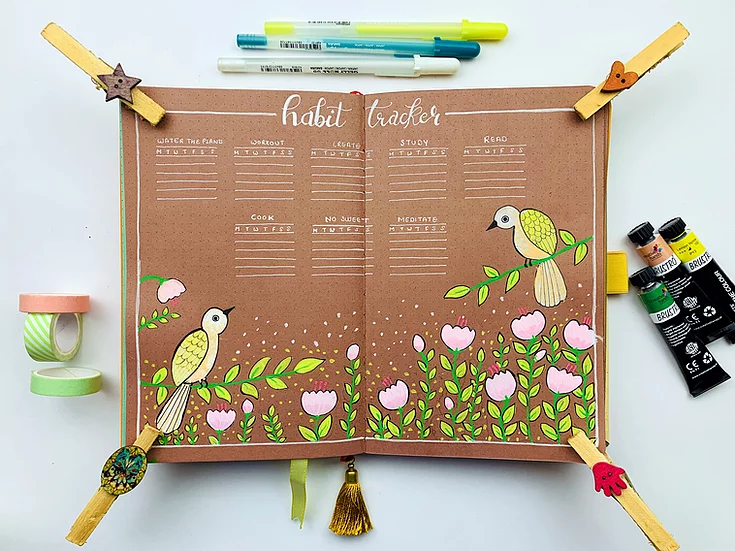 habit tracker
WATER THE PLANT WORKOUT CREATE STUDY READ
M T W T F S S M T W T F S S M T W T F S S M T W T F S S M T W T F S S
COOK NO SWEET MEDITATE
M T W T F S S M T W T F S S M T W T F S S
BRUSTRO
BRUSTRO
BRUST